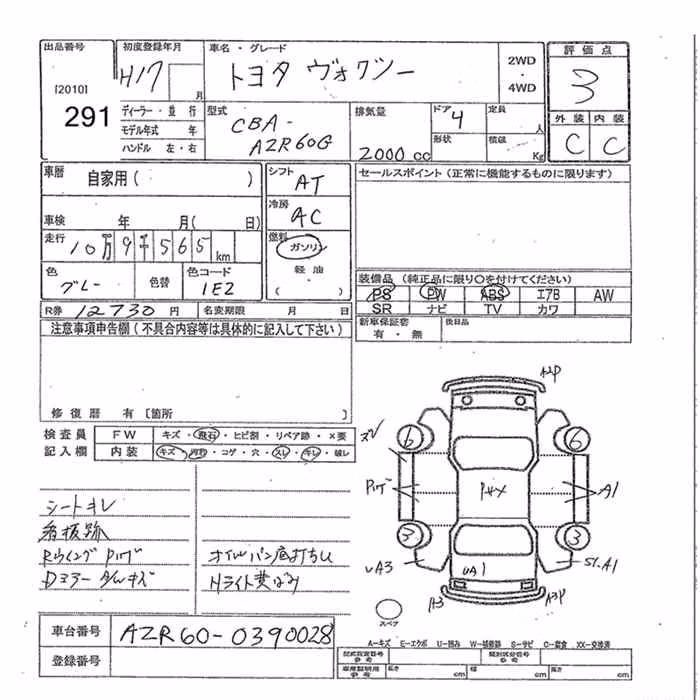 出品番号
[2010]
291
初度登録年月
H17 月
ディーラー・並 行
モデル年式 年
ハンドル 左・右
車名・グレード
トヨタ ヴォクシー
2WD
・
4WD
評価点
3
外装 内装
C C
型式
CBA-
AZR60G
排気量
2000 cc
ドア 4
形状
定員 人
積載 Kg
車暦
自家用( )
車検 年 月( 日)
走行
10万9千565 km
色
グレー
色替
色コード
1E2
シフト
AT
冷房
AC
燃料
ガソリン
軽 油
( )
セールスポイント (正常に機能するものに限ります)
装備品 (純正品に限り○を付けてください)
PS PW ABS エアB AW
SR ナビ TV カワ
新車保証書
有・無
後日品
R券 12730 円 名変期限 月 日
注意事項申告欄 (不具合内容等は具体的に記入して下さい)
修復暦 有 [箇所 ]
検査員
記入欄
FW キズ・飛石・ヒビ割・リペア跡・×要
内装 キズ・汚れ・コゲ・穴・スレ・キレ・破レ
シートキレ
看板跡
Rウイング Pハゲ
Dミラー タルキズ
オイルパン底打ち
Hライト黄ばみ
A2P
6
6
Pハゲ
A1
3
3
A3
S1.A1
A3
A3P
スペア
車台番号 AZR60-0390028
登録番号
A-キズ E-エクボ U-凹み W-補修跡 S-サビ C-腐食 XX-交換済
型式指定番号
参考
類別区分番号
参考
車庫証明用
参考
長さ cm 幅 cm 高さ cm